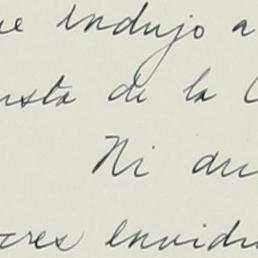 ue indujo a
usta de la C
Ni du
cres envidi